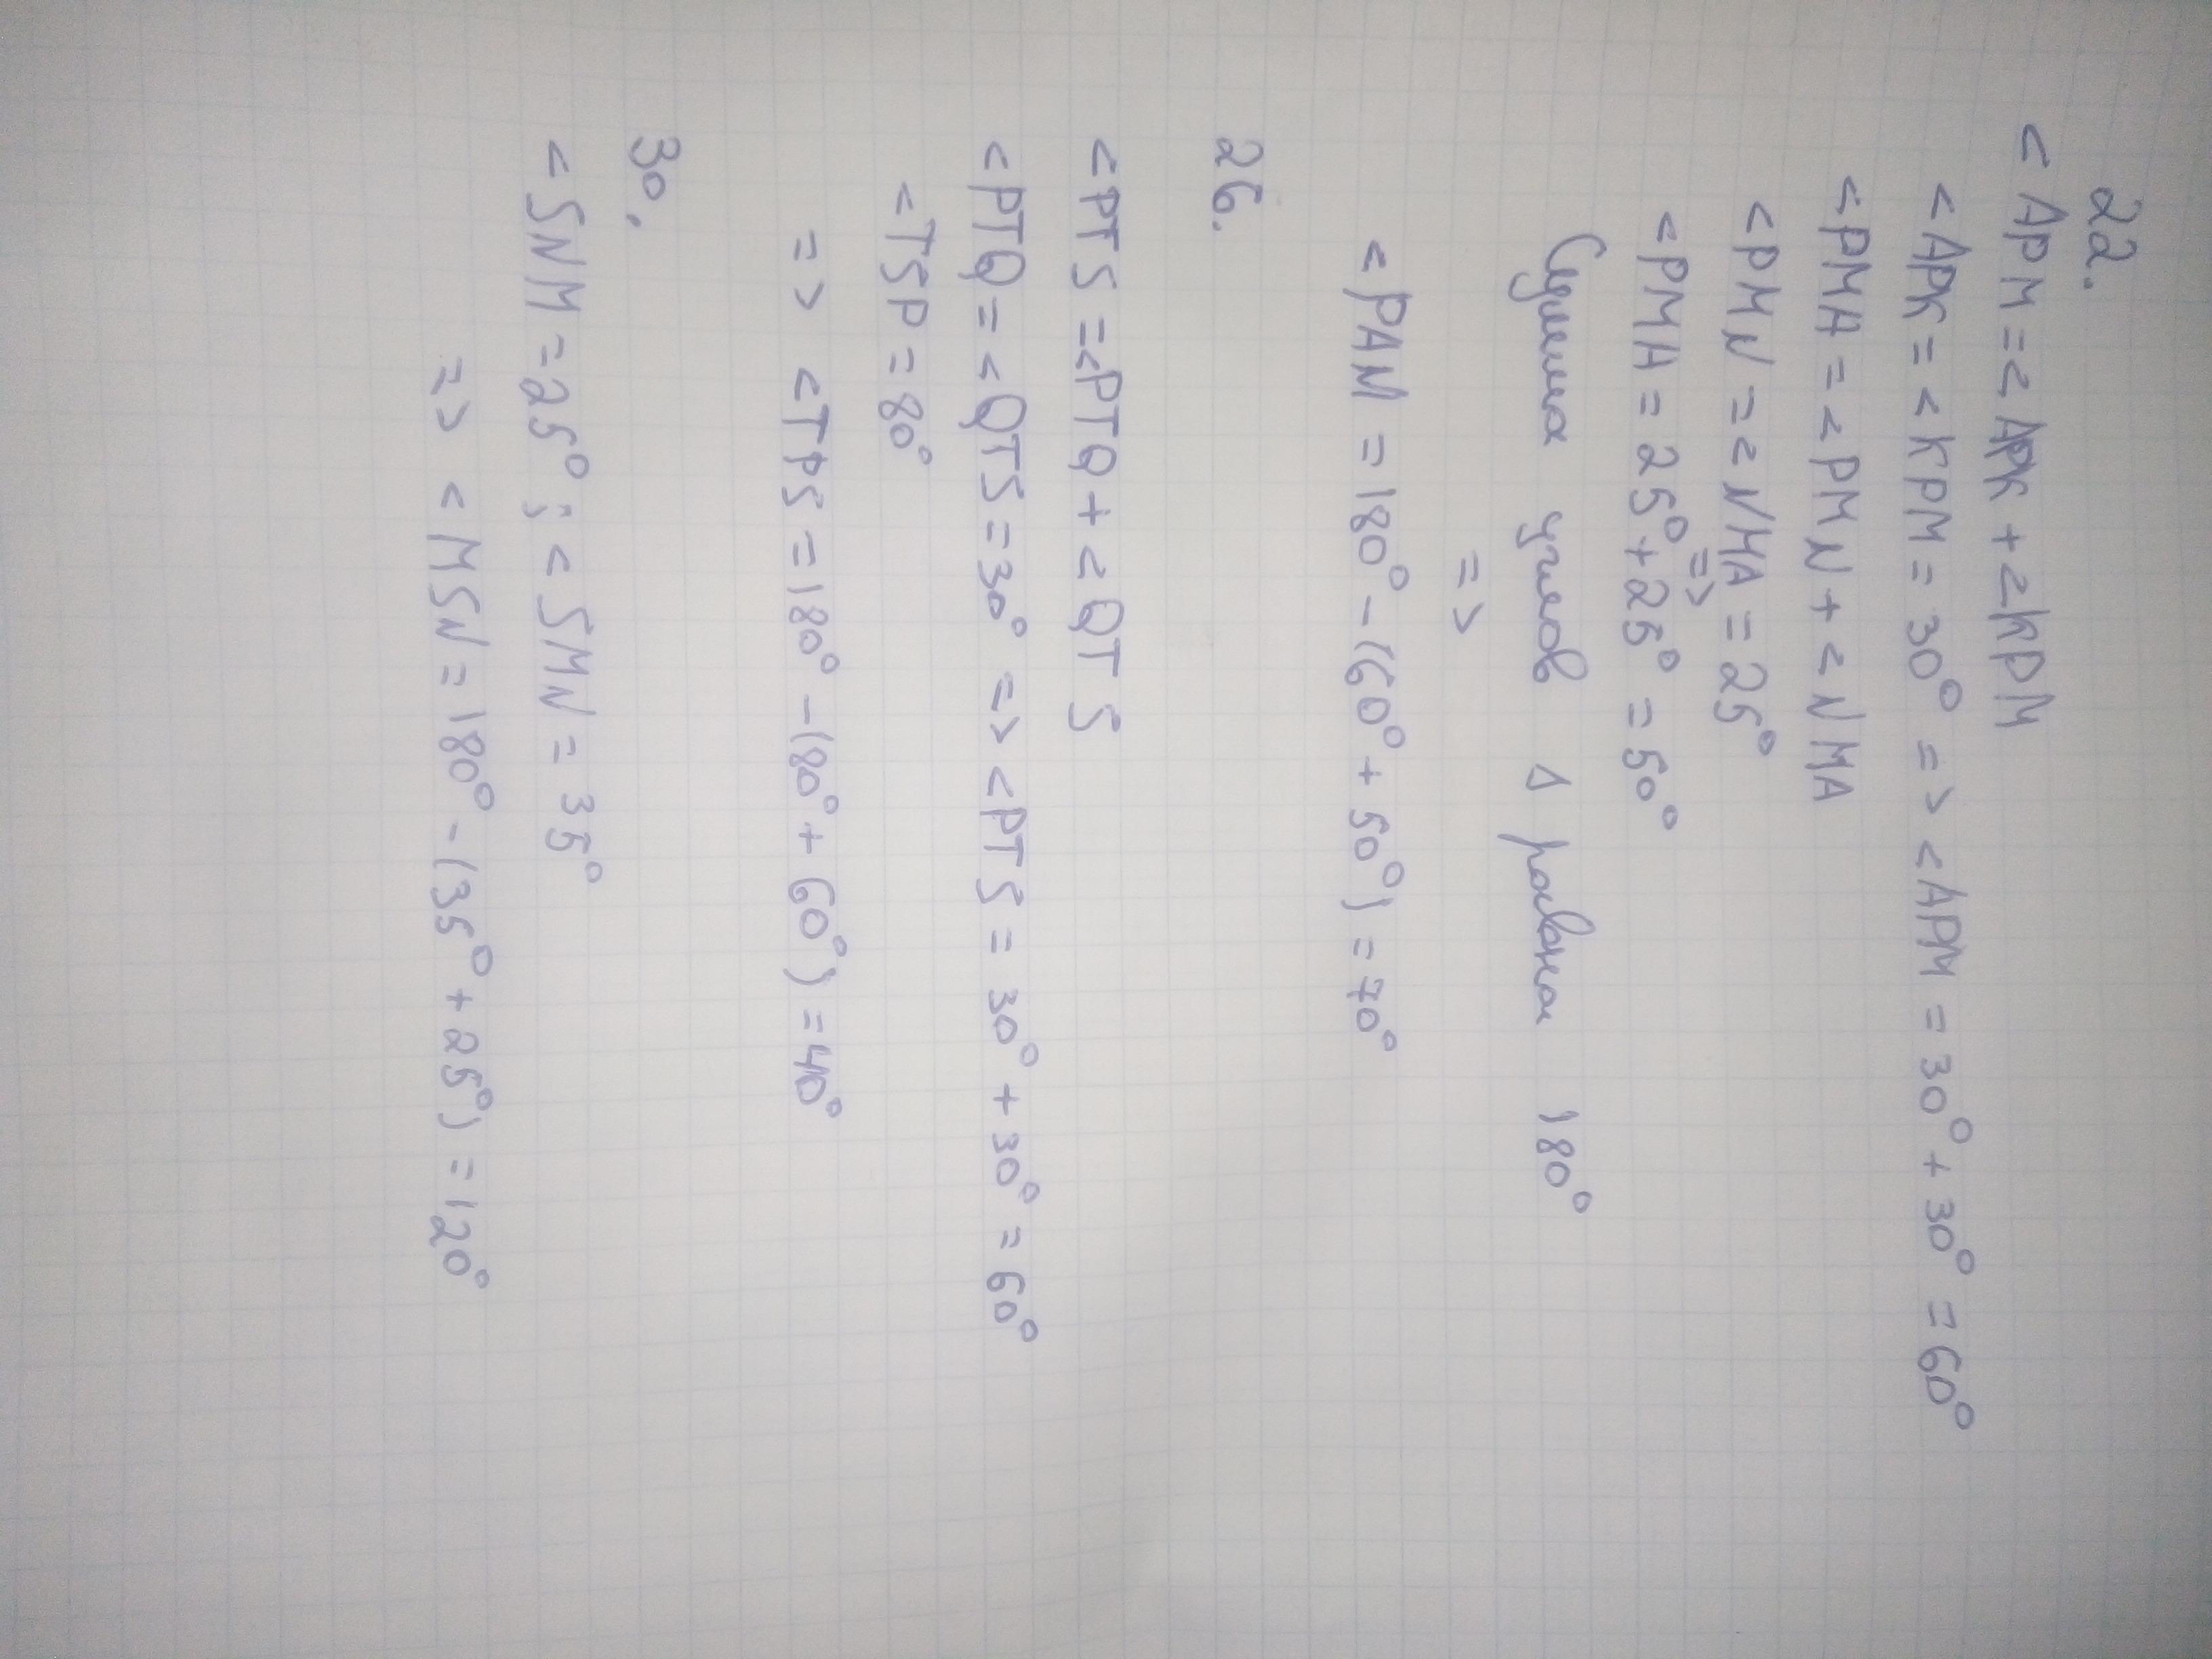 22.
< APM = < APK + < KPM
< APK = < KPM = 30° => < APM = 30° + 30° = 60°
< PMA = < PMN + < NMA
< PMN = < NMA = 25°
=>
< PMA = 25° + 25° = 50°
Сумма углов Δ равна 180°
=>
< PAN = 180° - (60° + 50°) = 70°
26.
< PTS = < PTQ + < QTS
< PTQ = < QTS = 30° => < PTS = 30° + 30° = 60°
< TSP = 80°
=> < TPS = 180° - (80° + 60°) = 40°
30.
< SNM = 25° ; < SMN = 35°
=> < MSN = 180° - (35° + 25°) = 120°